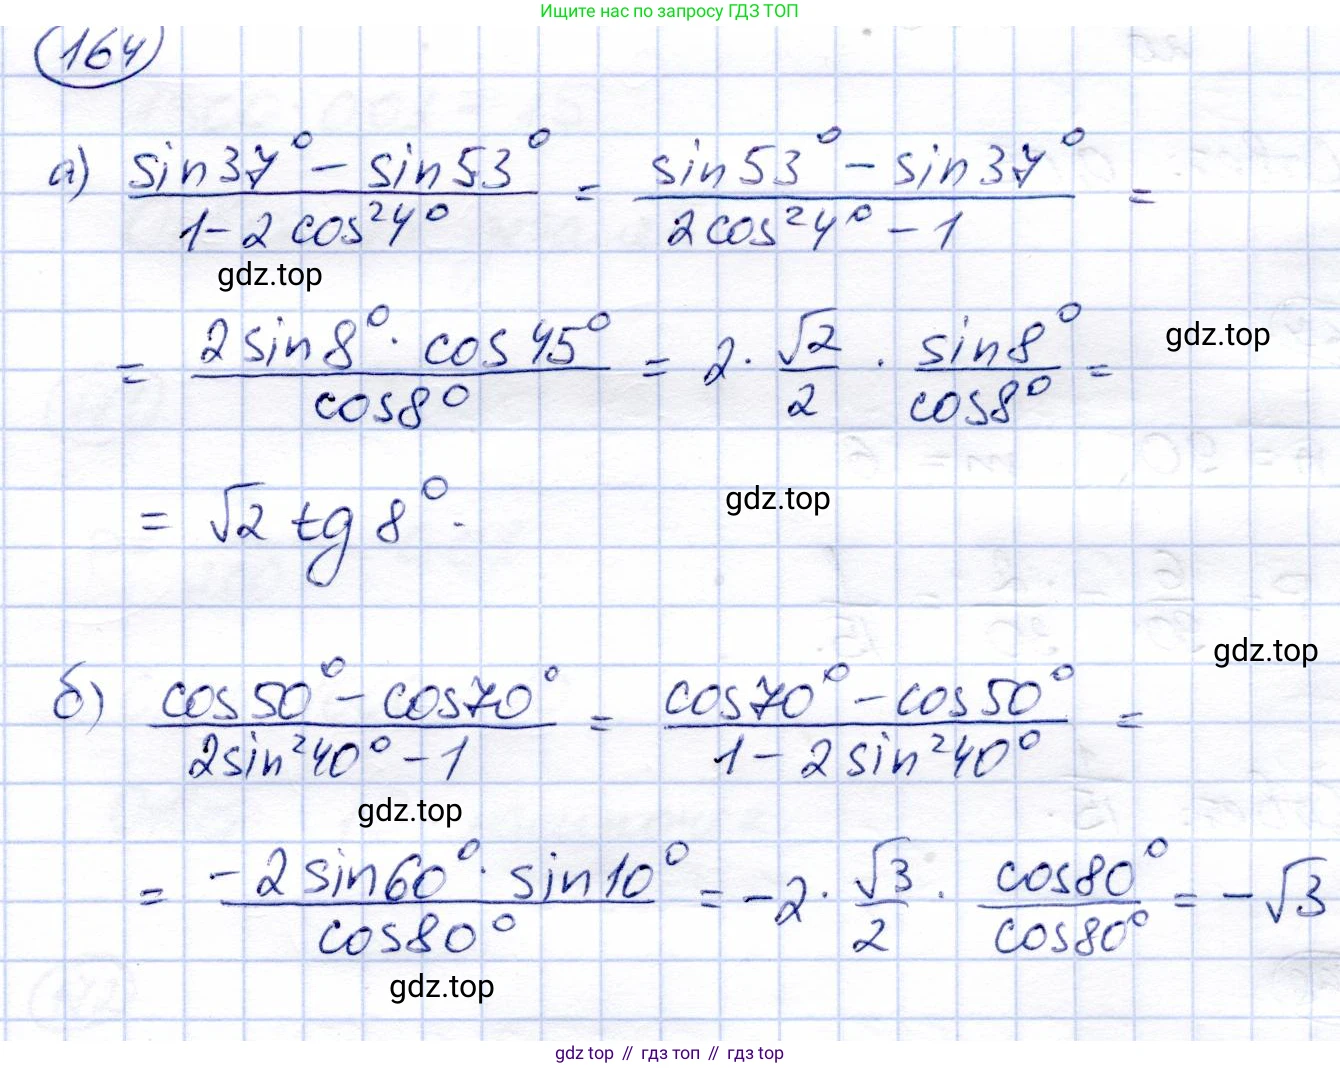 Ищите нас по запросу ГДЗ ТОП
164
а) (sin37° − sin53°)/(1 − 2cos²4°) = (sin53° − sin37°)/(2cos²4° − 1) =
gdz.top
= (2sin8° · cos45°)/(cos8°) = 2 · √2/2 · sin8°/cos8° =
gdz.top
= √2 tg 8°.
gdz.top
gdz.top
б) (cos50° − cos70°)/(2sin²40° − 1) = (cos70° − cos50°)/(1 − 2sin²40°) =
gdz.top
= (−2sin60° · sin10°)/(cos80°) = −2 · √3/2 · cos80°/cos80° = −√3
gdz.top
gdz top // гдз топ // гдз top